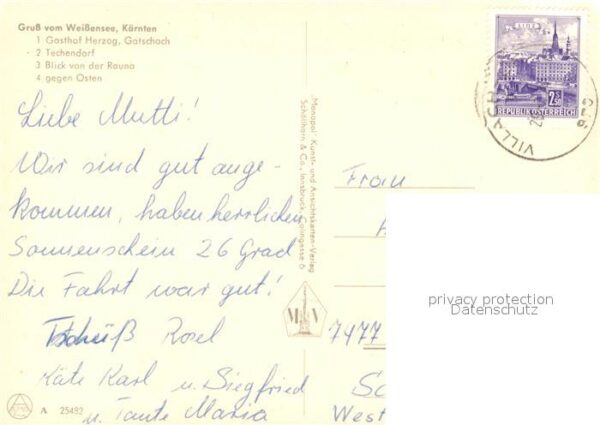 Gruß vom Weißensee, Kärnten
1 Gasthof Herzog, Gatschach
2 Techendorf
3 Blick von der Rauna
4 gegen Osten
Liebe Mutti!
Wir sind gut ange-
kommen, haben herrlichen
Sonnenschein 26 Grad
Die Fahrt war gut!
Tschüß Rosel
Käte Karl u. Siegfried
u. Tante Maria
A 25492
"Monopol" Kunst- und Ansichtskarten-Verlag
Schöllhorn & Co., Innsbruck,
M V
LINZ
2.50
REPUBLIK ÖSTERREICH
VILLACH
Frau
7477
West
privacy protection
Datenschutz